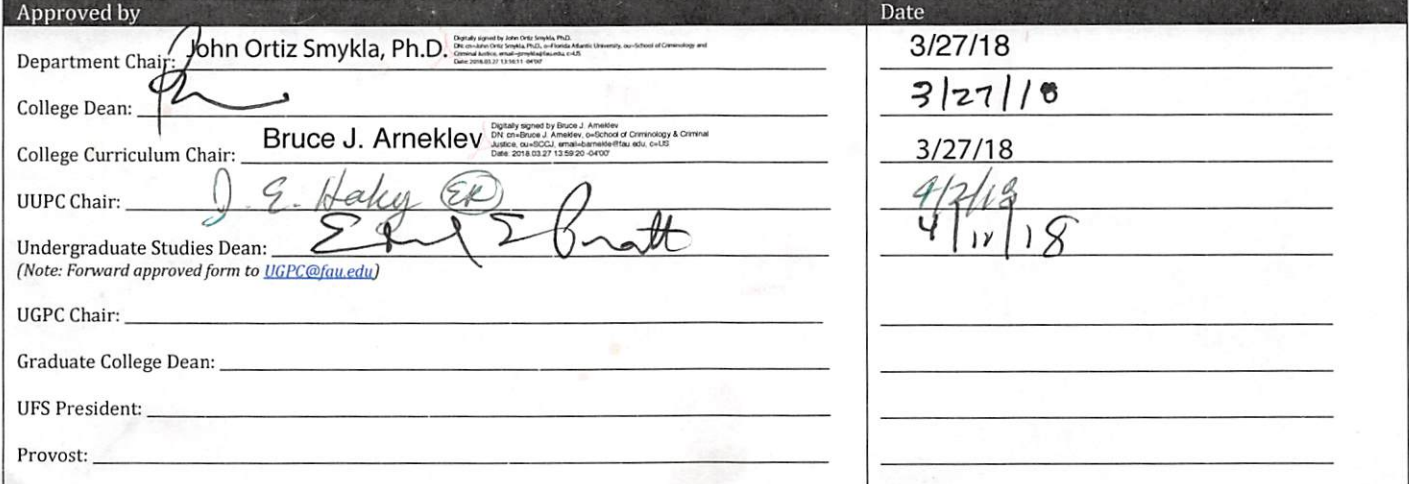 Approved by Date
Department Chair: John Ortiz Smykla, Ph.D. Digitally signed by John Ortiz Smykla, Ph.D. 3/27/18
DN: cn=John Ortiz Smykla, Ph.D., o=Florida Atlantic University, ou=School of Criminology and
Criminal Justice, email=jsmykla@fau.edu, c=US
Date: 2018.03.27 13:16:11 -04'00'
College Dean: 3/27/18
College Curriculum Chair: Bruce J. Arneklev Digitally signed by Bruce J. Arneklev 3/27/18
DN: cn=Bruce J. Arneklev, o=School of Criminology & Criminal
Justice, ou=SCCJ, email=barnekle@fau.edu, c=US
Date: 2018.03.27 13:59:20 -04'00'
UUPC Chair: J. E. Haky ER 4/2/18
Undergraduate Studies Dean: Pratt
(Note: Forward approved form to UGPC@fau.edu)
UGPC Chair:
Graduate College Dean:
UFS President:
Provost: